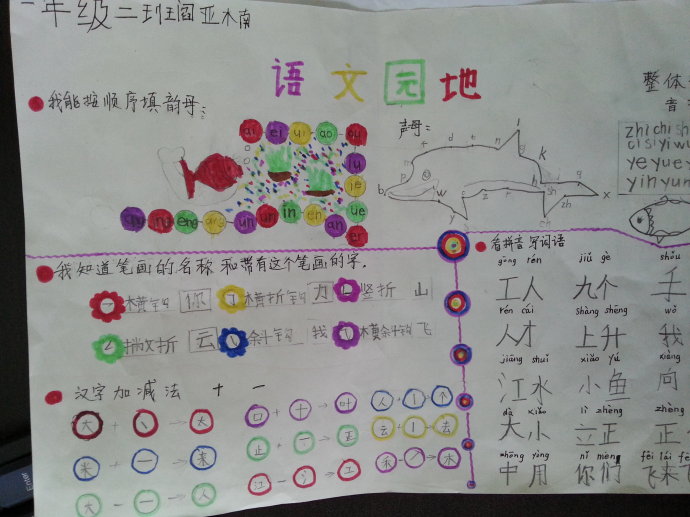 一年级二班阎亚木南
语文园地
我能按顺序填韵母:
ai ei ui ao ou
iu
ie
ue
er
ing eng ang un ün in en an
声母:
整体
音
zhi chi sh
ci si yi wu
ye yue
yin yun
我知道笔画的名称和带有这个笔画的字.
横钩 你 横折钩 力 竖折 山
撇折 云 斜钩 我 横斜钩 飞
看拼音写词语
gōng rén jiǔ gè shǒu
工人 九个 手
rén cái shàng shēng wǒ
人才 上升 我
jiāng shuǐ xiǎo yú xiàng
江水 小鱼 向
dà xiǎo lì zhèng zhèng
大小 立正 正
zhōng yòng nǐ men fēi lái fēi
中用 你们 飞来飞
汉字加减法 + 一
大 + 丶 → 太 口 + 十 → 叶 人 + 丨 → 个
米 - 一 → 来 止 + 一 → 正 云 + 丨 → 去
大 - 一 → 人 江 - 氵 → 工 禾 - 丿 → 木